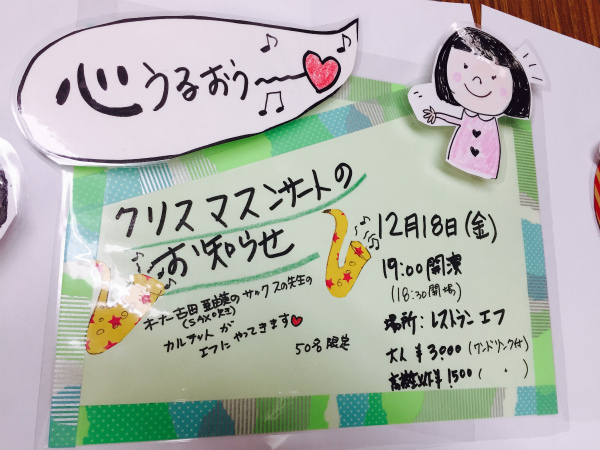 心うるおう〜
クリスマスコンサートの
お知らせ
オーナー吉田 亜由美のサックスの先生の
(SAXORE)
カルテットが
エフにやってきます♥
50名限定
12月18日(金)
19:00開演
(18:30開場)
場所:レストラン エフ
大人 ¥3000(ワンドリンク付)
高校生以下¥1500(〃)